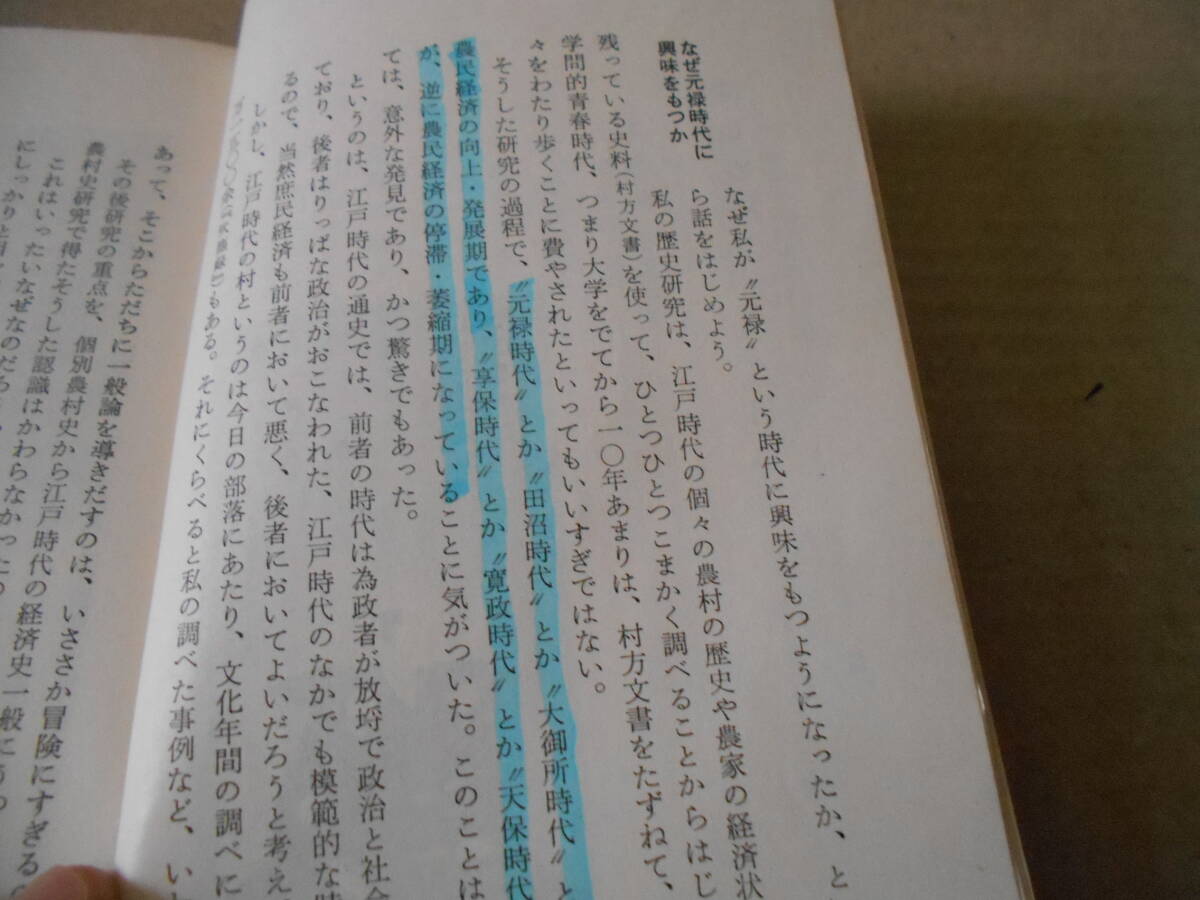 なぜ元禄時代に
興味をもつか
なぜ私が〝元禄〟という時代に興味をもつようになったか、と
ら話をはじめよう。
私の歴史研究は、江戸時代の個々の農村の歴史や農家の経済状
残っている史料(村方文書)を使って、ひとつひとつこまかく調べることからはじ
学問的青春時代、つまり大学をでてから一〇年あまりは、村方文書をたずねて、
々をわたり歩くことに費やされたといってもいいすぎではない。
そうした研究の過程で、〝元禄時代〟とか〝田沼時代〟とか〝大御所時代〟と
農民経済の向上・発展期であり、〝享保時代〟とか〝寛政時代〟とか〝天保時代
が、逆に農民経済の停滞・萎縮期になっていることに気がついた。このことは
ては、意外な発見であり、かつ驚きでもあった。
というのは、江戸時代の通史では、前者の時代は為政者が放埒で政治と社会
ており、後者はりっぱな政治がおこなわれた、江戸時代のなかでも模範的な時
るので、当然庶民経済も前者において悪く、後者においてよいだろうと考え
しかし、江戸時代の村というのは今日の部落にあたり、文化年間の調べに
もある。それにくらべると私の調べた事例など、い
あって、そこからただちに一般論を導きだすのは、いささか冒険にすぎる
その後研究の重点を、個別農村史から江戸時代の経済史一般にうつ
農村史研究で得たそうした認識はかわらなかった
これはいったいなぜなのだろ
にしっかりと